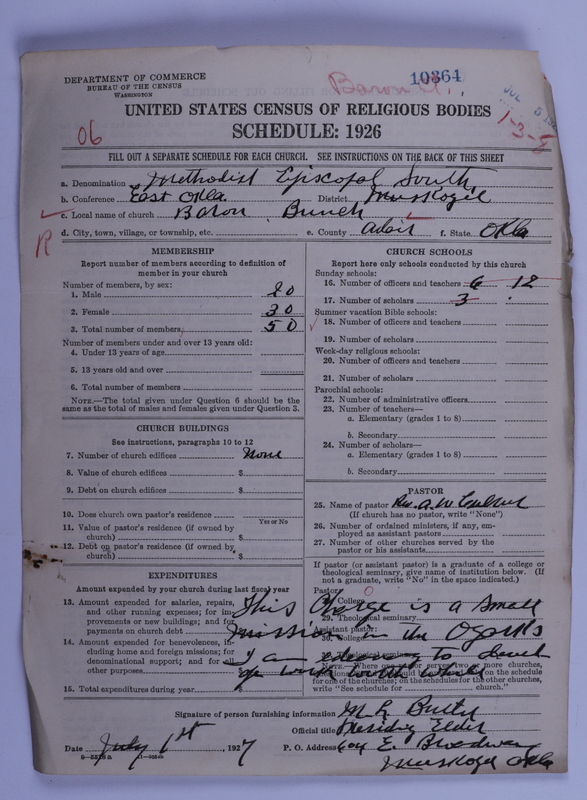 DEPARTMENT OF COMMERCE
BUREAU OF THE CENSUS
WASHINGTON
10364
UNITED STATES CENSUS OF RELIGIOUS BODIES
SCHEDULE: 1926
06
1-3-8
FILL OUT A SEPARATE SCHEDULE FOR EACH CHURCH. SEE INSTRUCTIONS ON THE BACK OF THIS SHEET
a. Denomination Methodist Episcopal South
b. Conference East Okla. District Muskogee
c. Local name of church Baron Bunch
d. City, town, village, or township, etc. e. County Adair f. State Okla
R
MEMBERSHIP
Report number of members according to definition of member in your church
Number of members, by sex:
1. Male 20
2. Female 30
3. Total number of members, 50
Number of members under and over 13 years old:
4. Under 13 years of age
5. 13 years old and over
6. Total number of members
NOTE.—The total given under Question 6 should be the
same as the total of males and females given under Question 3.
CHURCH BUILDINGS
See instructions, paragraphs 10 to 12
7. Number of church edifices None
8. Value of church edifices $
9. Debt on church edifices $
10. Does church own pastor's residence
Yes or No
11. Value of pastor's residence (if owned by
church) $
12. Debt on pastor's residence (if owned by
church) $
EXPENDITURES
Amount expended by your church during last fiscal year
13. Amount expended for salaries, repairs,
and other running expenses; for im-
provements or new buildings; and for
payments on church debt
14. Amount expended for benevolences, in-
cluding home and foreign missions; for
denominational support; and for all
other purposes
15. Total expenditures during year $
CHURCH SCHOOLS
Report here only schools conducted by this church
Sunday schools:
16. Number of officers and teachers 6 12
17. Number of scholars 3
Summer vacation Bible schools:
18. Number of officers and teachers
19. Number of scholars
Week-day religious schools:
20. Number of officers and teachers
21. Number of scholars
Parochial schools:
22. Number of administrative officers
23. Number of teachers—
a. Elementary (grades 1 to 8)
b. Secondary
24. Number of scholars—
a. Elementary (grades 1 to 8)
b. Secondary
PASTOR
25. Name of pastor Rev. A. W.
(If church has no pastor, write "None")
26. Number of ordained ministers, if any, em-
ployed as assistant pastors
27. Number of other churches served by the
pastor or his assistants
If pastor (or assistant pastor) is a graduate of a college or
theological seminary, give name of institution below. (If
not a graduate, write "No" in the space indicated.)
Pastor:
28. College
29. Theological seminary
Assistant pastor:
30. College
31. Theological seminary
NOTE.—Where one pastor serves two or more churches,
on the schedule
for one of the churches; on the schedules for the other churches,
write "See schedule for church."
This Charge is a small
mission in the Ozarks
I am
work worth while
Signature of person furnishing information M. L. Butler
Official title Presiding Elder
Date July 1st, 1927 P. O. Address E. Broadway
Muskogee Okla